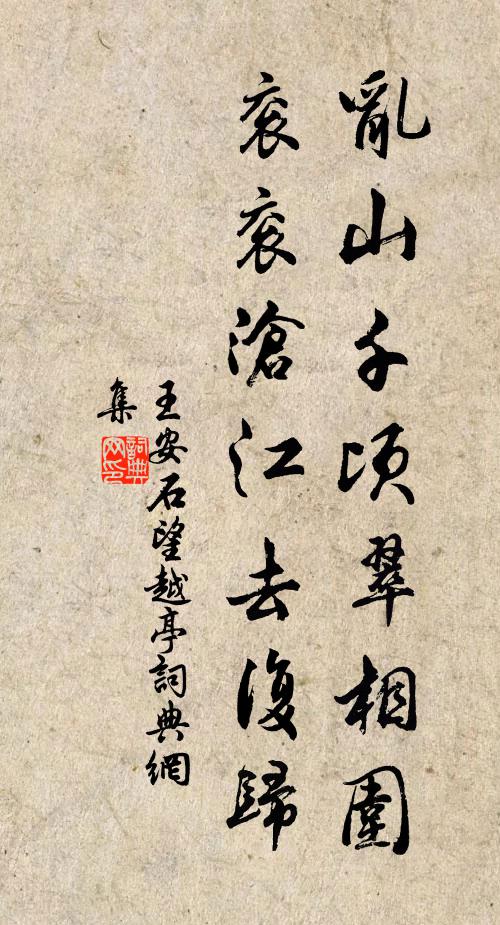 亂山千頃翠相圍
衮衮滄江去復歸
王安石望越亭詞典網
集
詞典网印